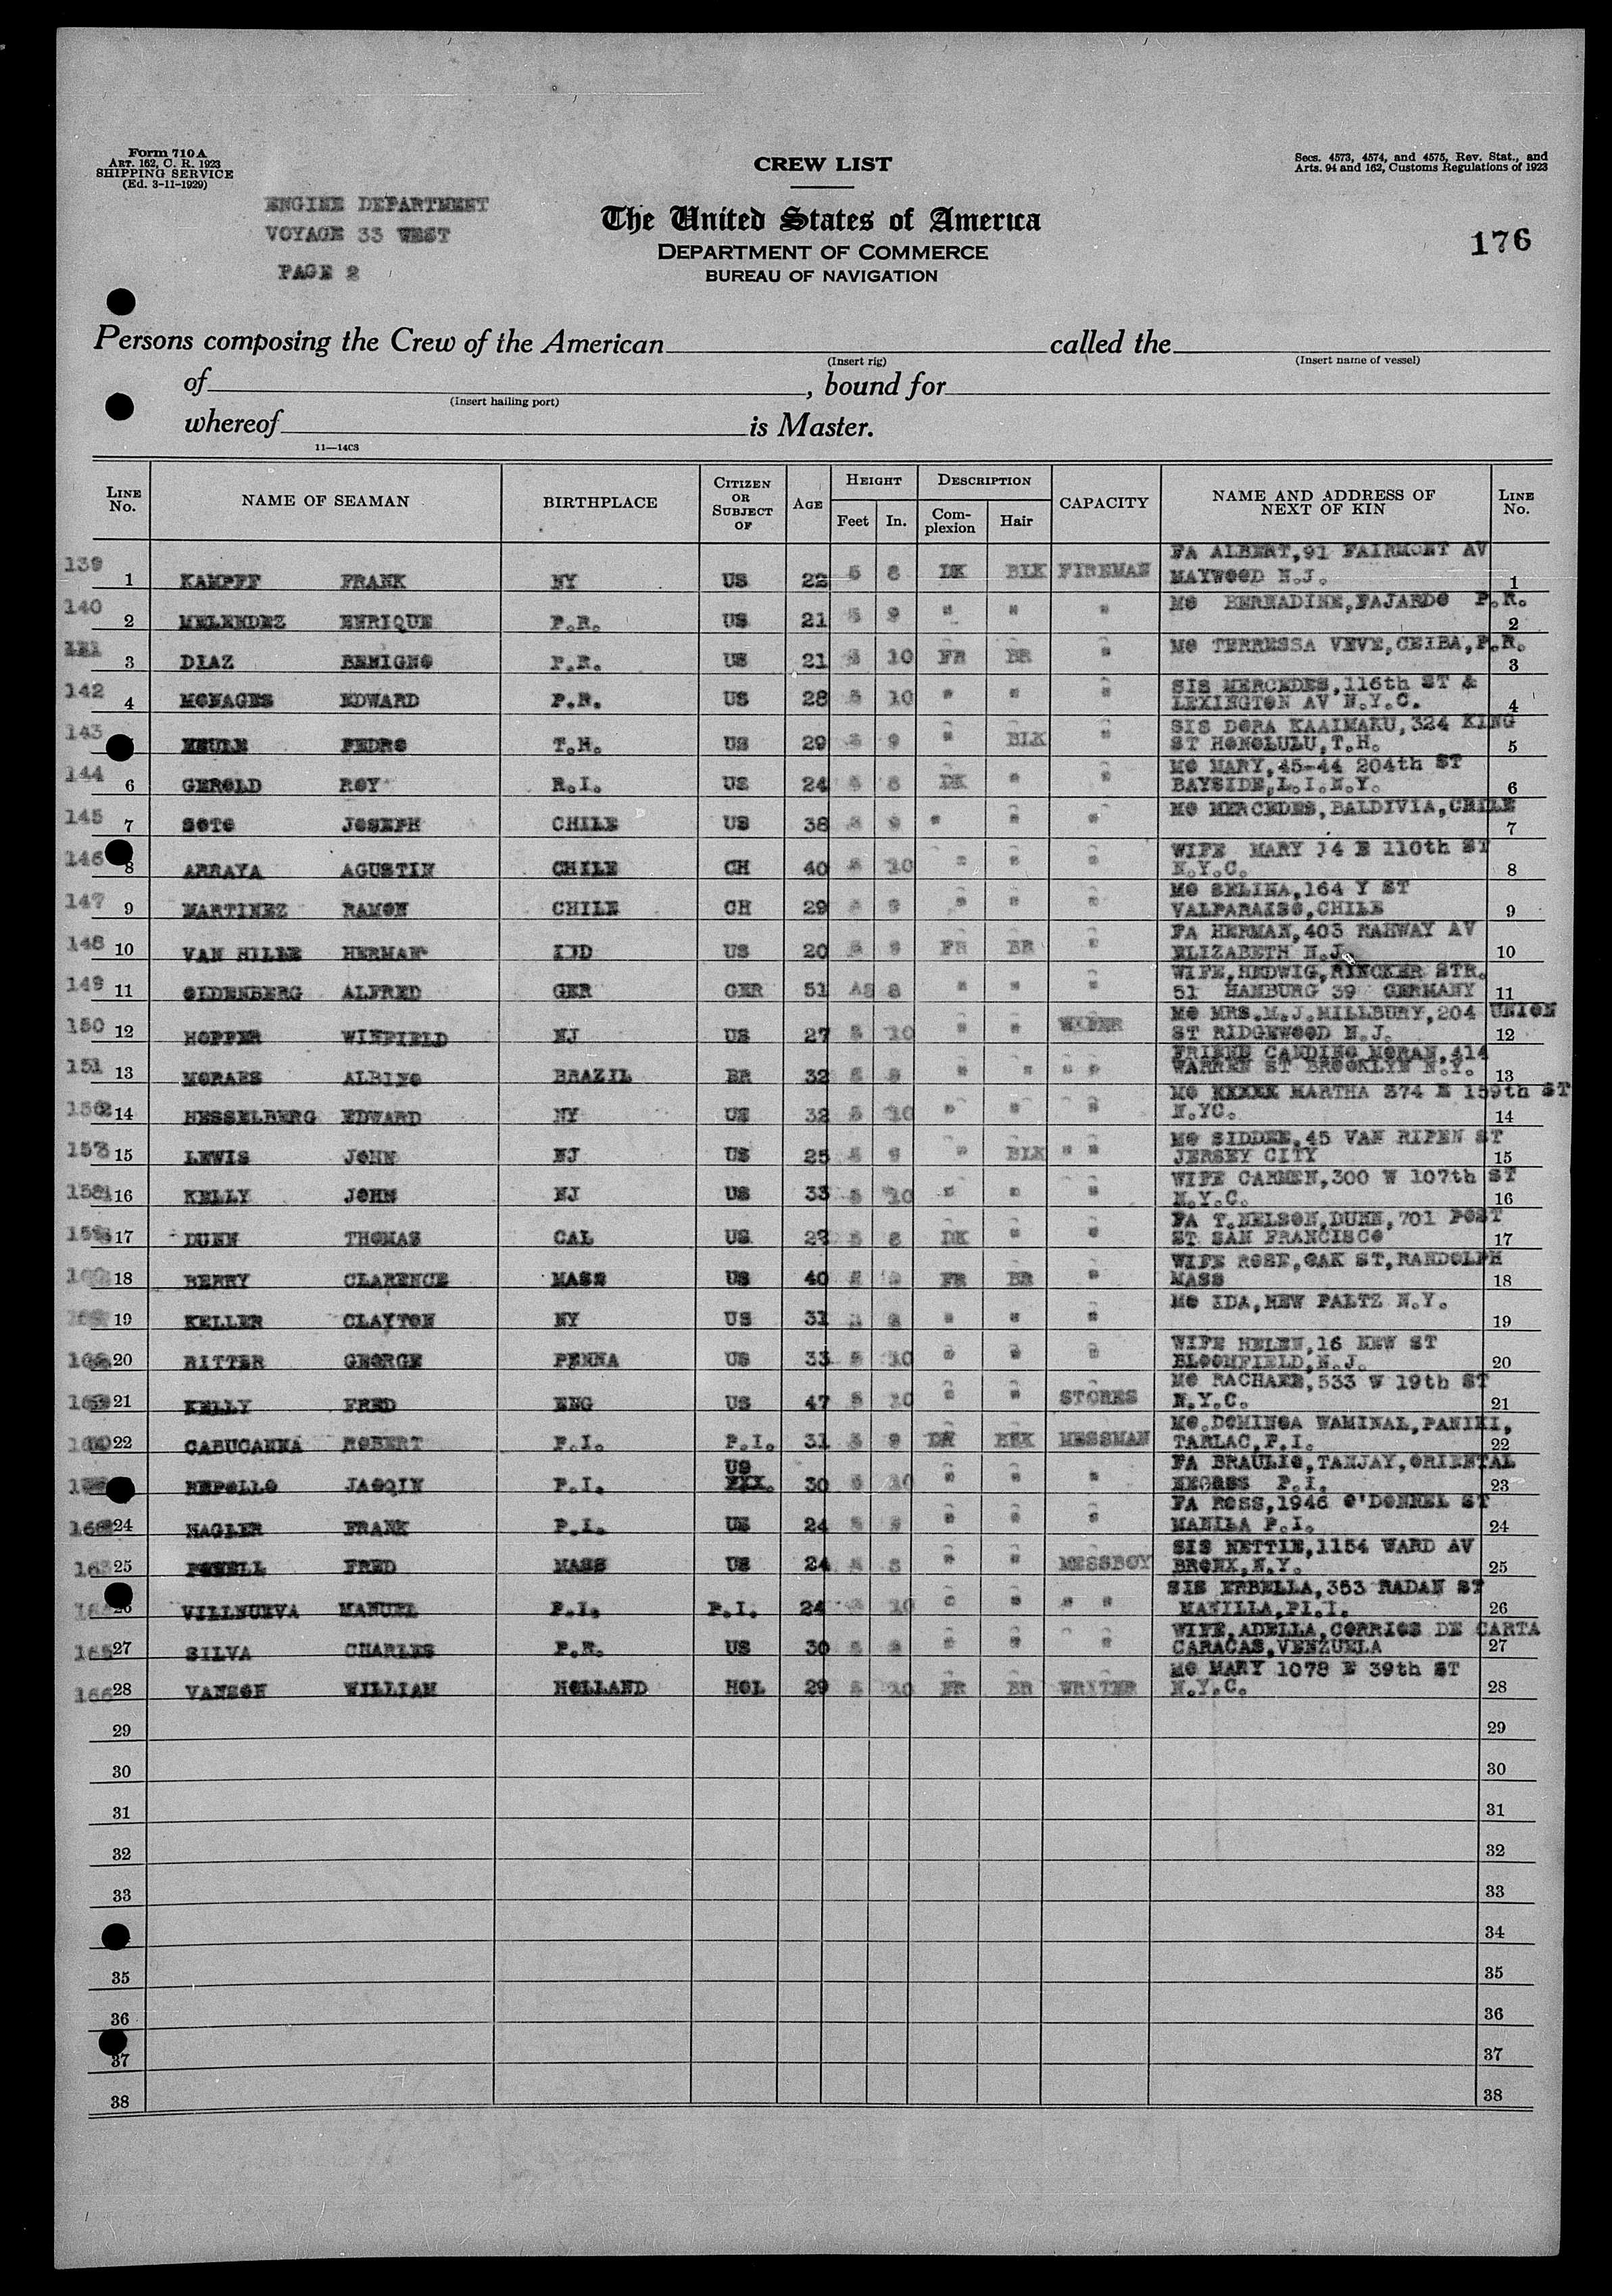 Form 710A
ART. 162, C. R. 1923
SHIPPING SERVICE
(Ed. 3-11-1929)
CREW LIST
Secs. 4573, 4574, and 4575, Rev. Stat., and
Arts. 94 and 162, Customs Regulations of 1923
ENGINE DEPARTMENT
VOYAGE 33 WEST
PAGE 2
The United States of America
DEPARTMENT OF COMMERCE
BUREAU OF NAVIGATION
176
Persons composing the Crew of the American called the
(Insert rig) (Insert name of vessel)
of , bound for
(Insert hailing port)
whereof is Master.
LINE No. NAME OF SEAMAN BIRTHPLACE CITIZEN OR SUBJECT OF AGE HEIGHT Feet In. DESCRIPTION Complexion Hair CAPACITY NAME AND ADDRESS OF NEXT OF KIN LINE No.
139 1 KAMPFF FRANK NY US 22 5 8 DK BLK FIREMAN FA ALBERT,91 FAIRMONT AV MAYWOOD N.J. 1
140 2 MELENDEZ ENRIQUE P.R. US 21 5 9 " " " MO BERNADINE,FAJARDO P.R. 2
3 DIAZ BENIGNO P.R. US 21 5 10 FR BR " MO TERRESSA VEVE,CEIBA,P.R. 3
142 4 MONAGES EDWARD P.R. US 28 5 10 " " " SIS MERCEDES,116th ST & LEXINGTON AV N.Y.C. 4
143 PEDRO T.H. US 29 5 9 " BLK " SIS DORA KAAIMAKU,324 KING ST HONOLULU,T.H. 5
144 6 GEROLD ROY R.I. US 24 5 8 DK " " MO MARY,45-44 204th ST BAYSIDE,L.I.N.Y. 6
145 7 SOTO JOSEPH CHILE US 38 5 9 " " " MO MERCEDES,BALDIVIA,CHILE 7
146 8 ARRAYA AGUSTIN CHILE CH 40 5 10 " " " WIFE MARY 14 E 110th ST N.Y.C. 8
147 9 MARTINEZ RAMON CHILE CH 29 5 9 " " " MO SELINA,164 Y ST VALPARAISO,CHILE 9
148 10 VAN HILLE HERMAN US 20 5 9 FR BR " FA HERMAN,403 RAHWAY AV ELIZABETH N.J. 10
149 11 OLDENBERG ALFRED GER GER 51 8 " " " WIFE,HEDWIG,RINCKER STR. 51 HAMBURG 39 GERMANY 11
150 12 HOPPER WINFIELD NJ US 27 5 10 " " WIPER MO MRS.M.J.MILLBURY,204 UNION ST RIDGEWOOD N.J. 12
151 13 MORAES ALBINO BRAZIL BR 32 5 9 " " " " FRIEND CANDINO MORAN,414 WARREN ST BROOKLYN N.Y. 13
152 14 HESSELBERG EDWARD NY US 32 5 10 " " " MO MARTHA 374 E 159th ST N.YC. 14
153 15 LEWIS JOHN NJ US 25 5 9 " BLK " " MO SIDDEE,45 VAN RIPEN ST JERSEY CITY 15
16 KELLY JOHN NJ US 33 5 10 " " " WIFE CARMEN,300 W 107th ST N.Y.C. 16
17 DUNN THOMAS CAL US 5 8 DK " " FA T.NELSON,DUNN,701 POST ST SAN FRANCISCO 17
18 BERRY CLARENCE MASS US 40 5 9 FR BR " WIFE ROSE,OAK ST,RANDOLPH MASS 18
19 KELLER CLAYTON NY US 31 " " " MO IDA,NEW PALTZ N.Y. 19
20 RITTER GEORGE PENNA US 33 5 10 " " " WIFE HELEN,16 NEW ST BLOOMFIELD,N.J. 20
21 KELLY FRED ENG US 47 5 10 " " STORES MO RACHAEL,533 W 19th ST N.Y.C. 21
22 CABUCANNA ROBERT P.I. P.I. 31 5 9 DK BLK MESSMAN MO.DOMINGA WAMINAL,PANIKI, TARLAC,P.I. 22
REPOLLO JAOQIN P.I. US 30 5 10 " " " FA BRAULIO,TANJAY,ORIENTAL NEGROS P.I. 23
24 NAGLER FRANK P.I. US 24 5 9 " " " FA ROSS,1946 O'DONNEL ST MANILA P.I. 24
163 25 POWELL FRED MASS US 24 5 8 " " MESSBOY SIS NETTIE,1154 WARD AV BRONX,N.Y. 25
26 VILLNUEVA MANUEL P.I. P.I. 24 5 10 " " " " SIS ERBELLA,353 RADAN ST MANILLA,PI.I. 26
165 27 SILVA CHARLES P.R. US 30 5 8 " " " WIFE,ADELLA,CORRIOS DE CARTA CARACAS,VENZUELA 27
166 28 VANSON WILLIAM HOLLAND HOL 29 5 10 FR BR WRITER MO MARY 1078 E 39th ST N.Y.C. 28
29 29
30 30
31 31
32 32
33 33
34
35 35
36 36
37 37
38 38